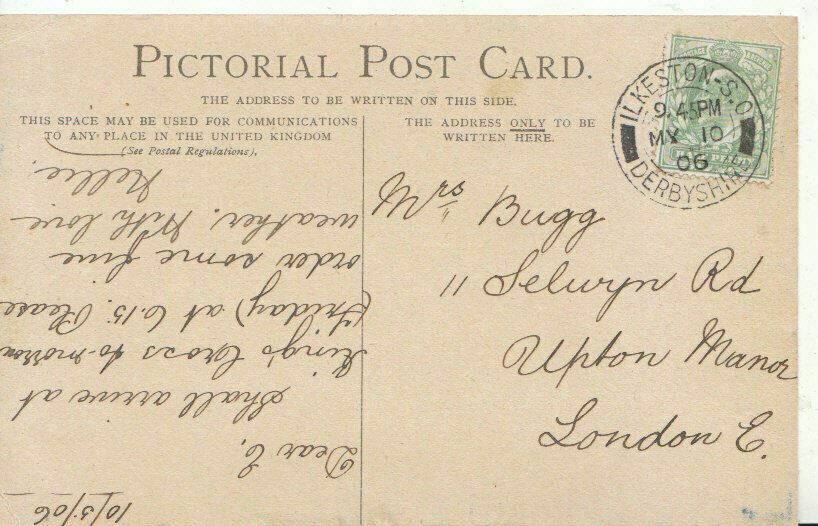 PICTORIAL POST CARD.
THE ADDRESS TO BE WRITTEN ON THIS SIDE.
THIS SPACE MAY BE USED FOR COMMUNICATIONS
TO ANY PLACE IN THE UNITED KINGDOM
(See Postal Regulations).
THE ADDRESS ONLY TO BE
WRITTEN HERE.
ILKESTON-S.O
9.45PM
MY 10
06
DERBYSHIRE
Mrs Bugg
11 Selwyn Rd
Upton Manor
London E.
10/5/06
Dear E.
Shall arrive at
King's Cross to-morrow
(Friday) at 6.15. Please
order some fine
weather. With love
Nellie.